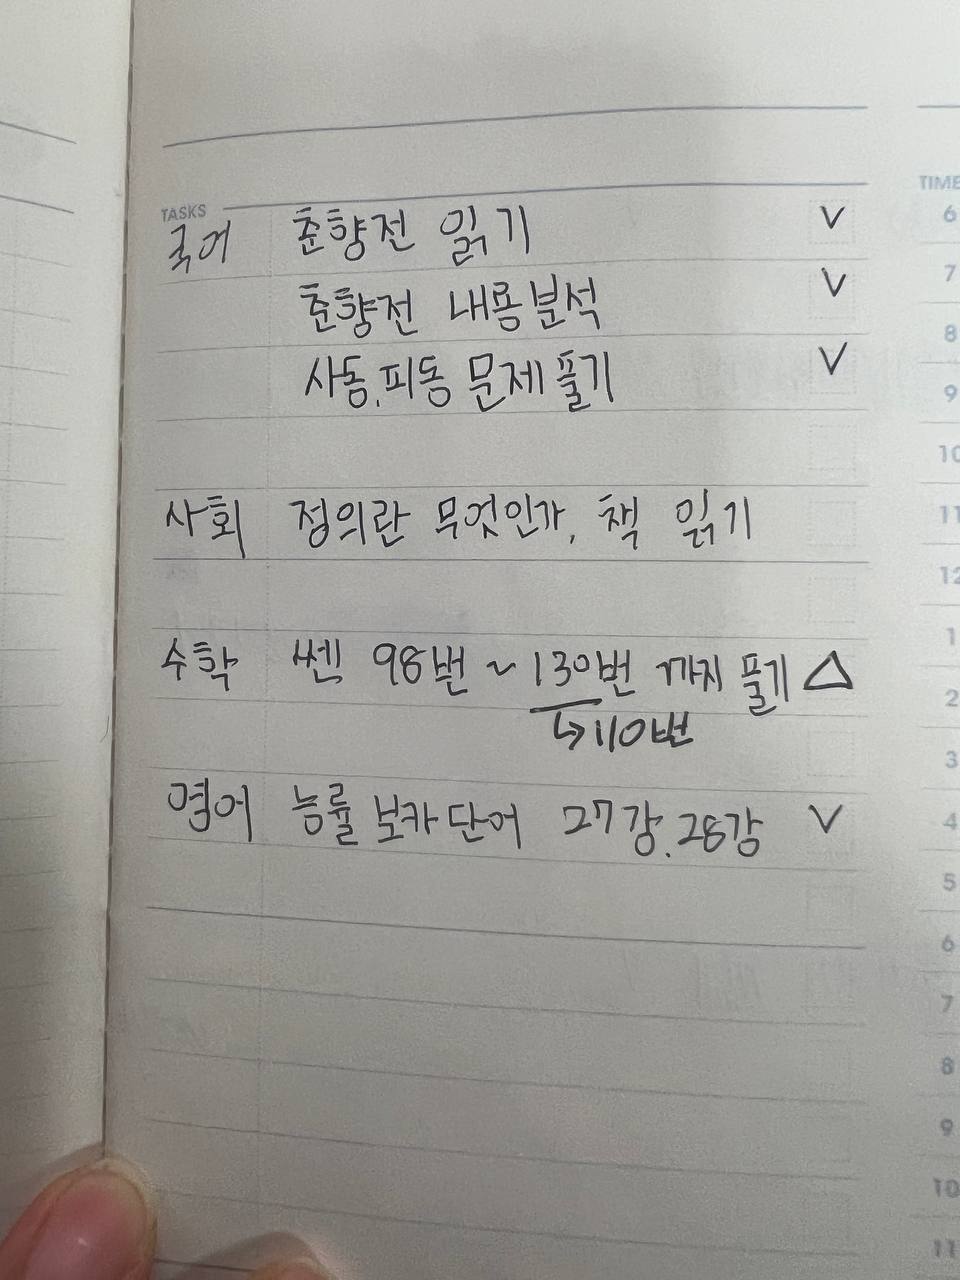 TASKS
국어 춘향전 읽기 V
춘향전 내용분석 V
사동.피동 문제풀기 V
사회 정의란 무엇인가, 책 읽기
수학 쎈 98번 ~ 130번 까지 풀기 △
↳110번
영어 능률 보카 단어 27강.28강 V
TIME
6
7
8
9
10
11
12
1
2
3
4
5
6
7
8
9
10
11